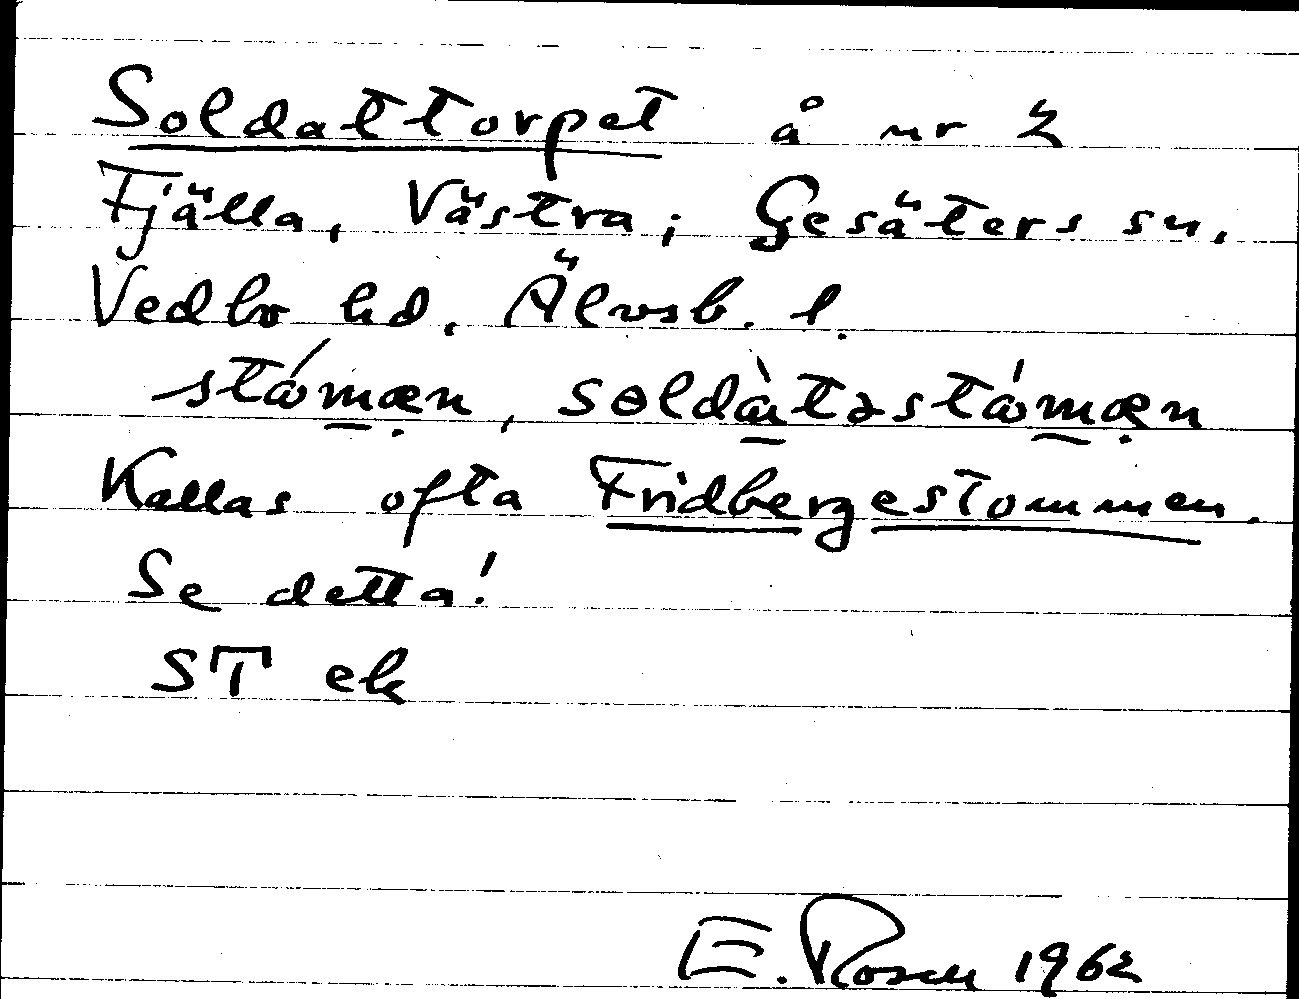 Soldattorpet å nr 2
Fjälla, Västra; Gesäters sn.
Vedbo hd. Älvsb. l.
stómæn, sɵldàtəstómæn
Kallas ofta Fridbergestommen.
Se detta!
ST ek
E. Rosen 1962